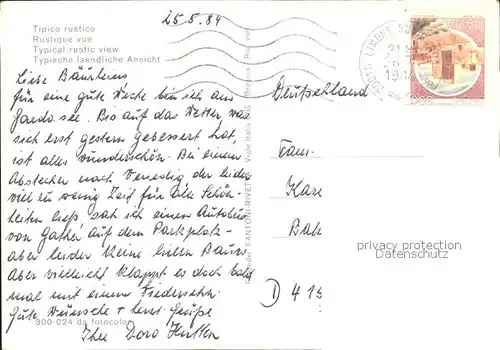 25.5.84
Tipico rustico
Rustique vue
Typical rustic view
Typische laendliche Ansicht
Liebe
für eine gute Woche bin ich am
Gardasee. Bis auf das Wetter, was
sich erst gestern gebessert hat,
ist alles wunderschön. Bei einem
Abstecher nach Venedig der leider
viel zu wenig Zeit für alle Schön-
heiten ließ sah ich einen Autobus
von auf dem Parkplatz -
aber leider keine lieben
Aber vielleicht klappt es doch bald
mal mit einem Wiedersehn.
Gute Wünsche + herzl. Grüße
Ihre Dora
300-024 da fotocolor
Deutschland
Fam.
Kar
D 4 15
privacy protection
Datenschutz